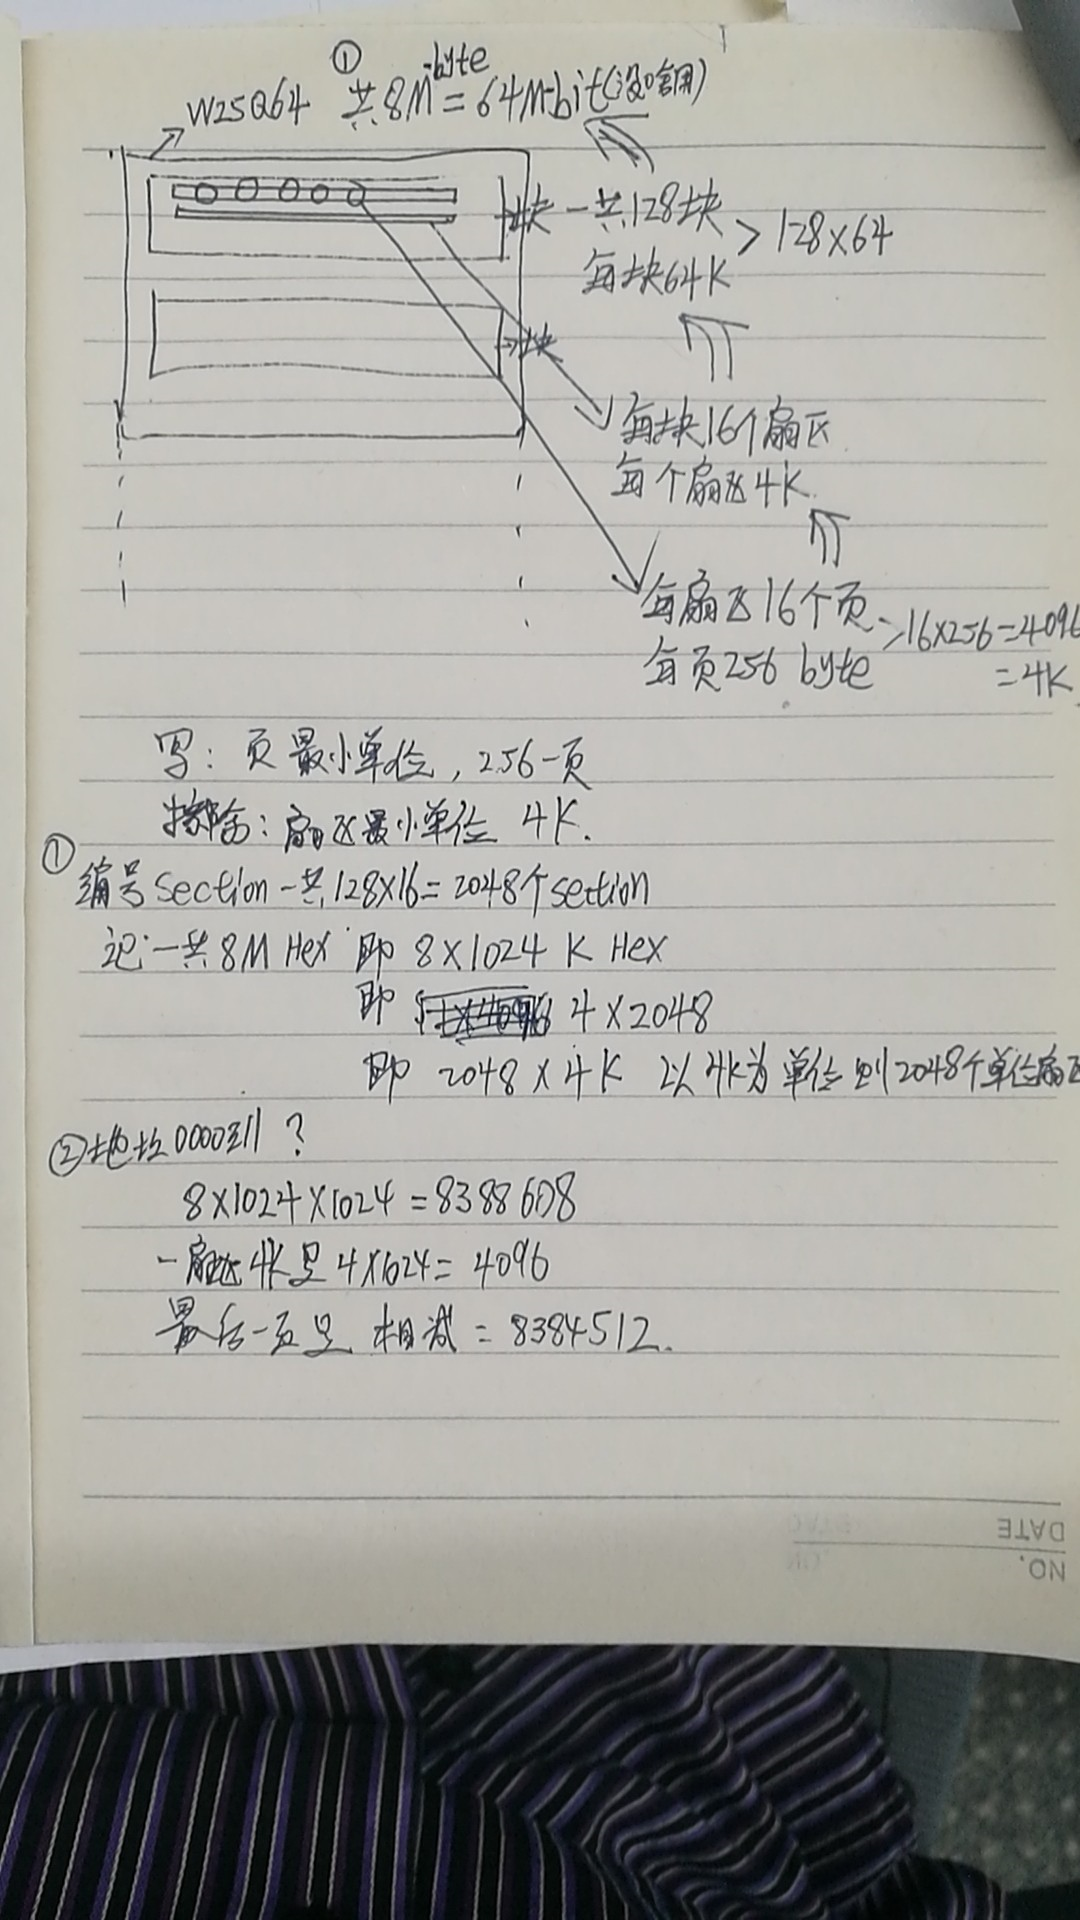 ①
W25Q64 共8M-byte = 64M-bit(没啥用)
块 一共128块
每块64K > 128×64
块
每块16个扇区
每个扇区4K.
每扇区16个页
每页256 byte
>16×256=4096
=4K
写: 页最小单位, 256一页
擦除: 扇区最小单位 4K.
① 编号section一共128×16=2048个section
记 一共8M Hex 即 8×1024 K Hex
即 4×2048
即 2048×4K 以4K为单位则2048个单位扇区
②地址0000到 ?
8×1024×1024=8388608
一扇区4K是 4×1024= 4096
最后一页是 相减 = 8384512.
DATE
NO.